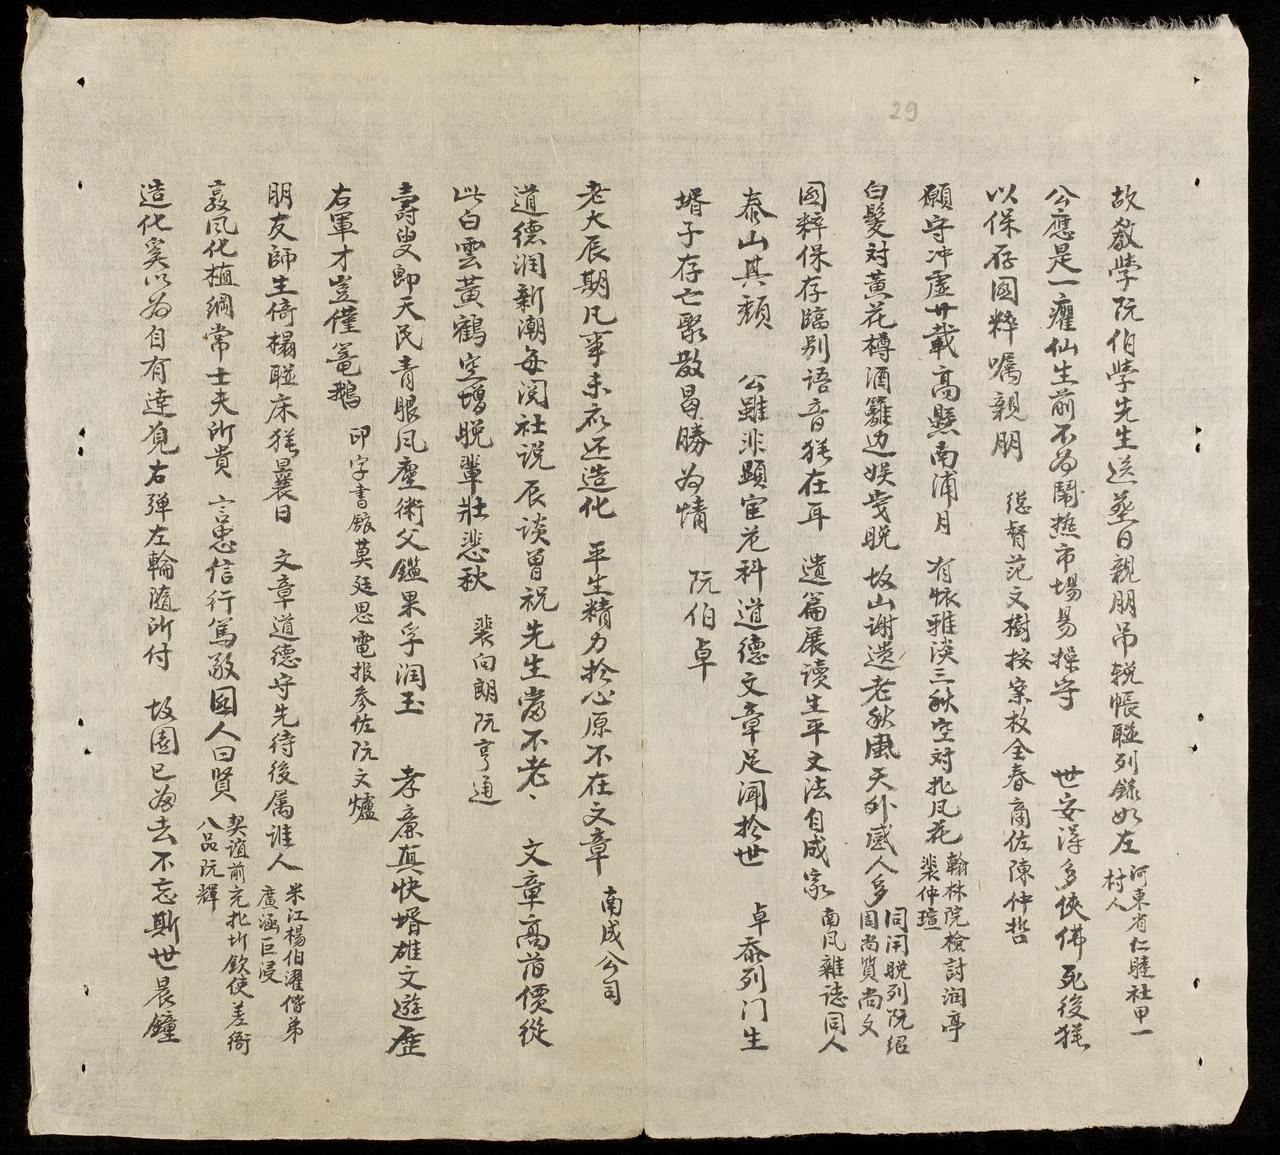 29
故教學阮伯學先生送葬日親朋吊輓帳聯列錄如左 河東省仁睦社甲一村人
公應是一癯仙生前不為鬧熱市場易操守 世安得多俠佛死後猶
以保存國粹囑親朋 總督范文樹按察枚全春商佐陳仲哲
願守冲虛廿載高懸南浦月 有懷雅淡三秋空對北風花 翰林院檢討润亭裴仲瑄
白髮対黃花樽酒籬边娱歲晚 故山谢遗老秋風天外感人多 同闬晚列阮绍周尚質尚文
國粹保存臨别語音猶在耳 遺篇展读生平文法自成家 南风雜誌同人
泰山其頹 公雖非顯宦危科道德文章足闻於世 卓泰列门生
壻子存亡聚散曷勝為情 阮伯卓
老大辰期凡事未衣还造化 平生精力於心原不在文章 南成公司
道德润新潮每阅社说辰谈曾祝先生當不老、 文章高舊價從
此白雲黃鶴空增晚輩壯悲秋 裴向朗阮亨通
壽叟即天民青眼风塵術父鑑果孚润玉 孝廉真快壻雄文遊歷
右軍才豈僅籠鵝 印字書館莫廷思電报參佐阮文爐
朋友師生倚榻聯床猶曩日 文章道德守先待後属谁人 米江楊伯濯偕弟廣涵巨浸
敦风化植綱常士夫所貴 言忠信行篤敬國人曰賢 契誼前充北圻欽使差衙八品阮輝
造化奚以為自有達觀右弹左輪隨所付 故園已為去不忘斯世晨鐘